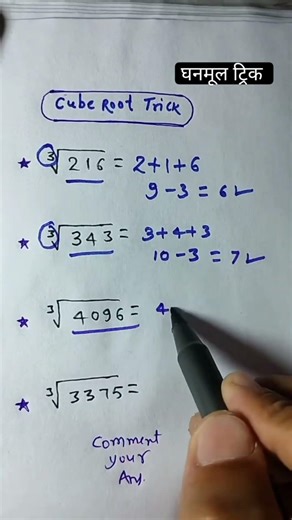 घनमूल ट्रिक
Cube Root Trick
★ ∛216 = 2+1+6
9-3 = 6✓
★ ∛343 = 3+4+3
10-3 = 7✓
★ ∛4096 = 4
★ ∛3375 =
Comment
your
Ans.